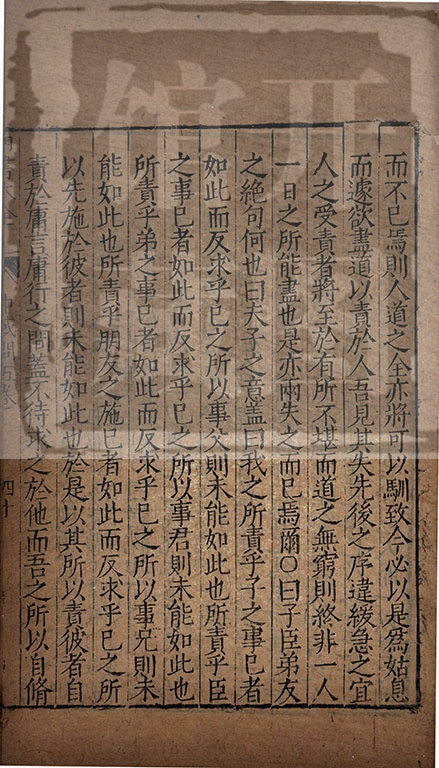 而不已焉則人道之全亦將可以馴致今必以是為姑息
而遽欲盡道以責於人吾見其失先後之序違緩急之宜
人之受責者將至於有所不堪而道之無窮則終非一人
一日之所能盡也是亦兩失之而已焉爾○曰子臣弟友
之絶句何也曰夫子之意盖曰我之所責乎子之事已者
如此而反求乎已之所以事父則未能如此也所責乎臣
之事已者如此而反求乎已之所以事君則未能如此也
所責乎弟之事已者如此而反求乎已之所以事兄則未
能如此也所責乎朋友之施已者如此而反求乎已之所
以先施於彼者則未能如此也於是以其所以責彼者自
責於庸言庸行之間盖不待求之於他而吾之所以自脩
四十